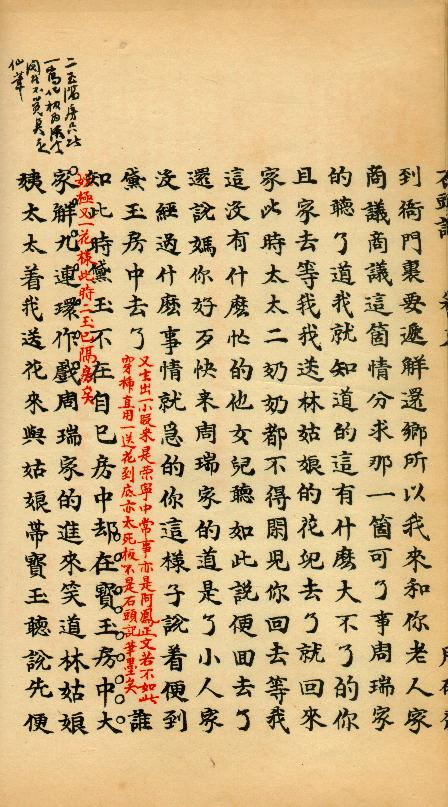 到衙門裏要遞解還鄉所以我来和你老人家
商議商議這箇情分求那一箇可了事周瑞家
的聽了道我就知道的這有什麽大不了的你
且家去等我我送林姑娘的花兒去了就回來
家此時太太二奶奶都不得閑兒你回去等我
這沒有什麽忙的他女兒聽如此說便回去了
還說媽你好歹快来周瑞家的道是了小人家
沒經過什麽事情就急的你這樣子說着便到
黛玉房中去了
又生出一小段来是荣寧中常事亦是阿鳳正文若不如此
穿插直用一送花到底亦太死板不是石頭記筆墨矣
誰
知此時黛玉不在自己房中却在寶玉房中大
妙極又一花樣此時二玉已隔房矣
家解九連環作戲周瑞家的進來笑道林姑娘
姨太太着我送花来與姑娘帶寶玉聽說先便
二玉隔房
仙筆